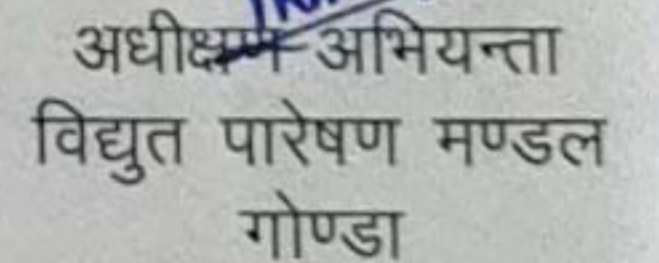 अधीक्षण अभियन्ता
विद्युत पारेषण मण्डल
गोण्डा